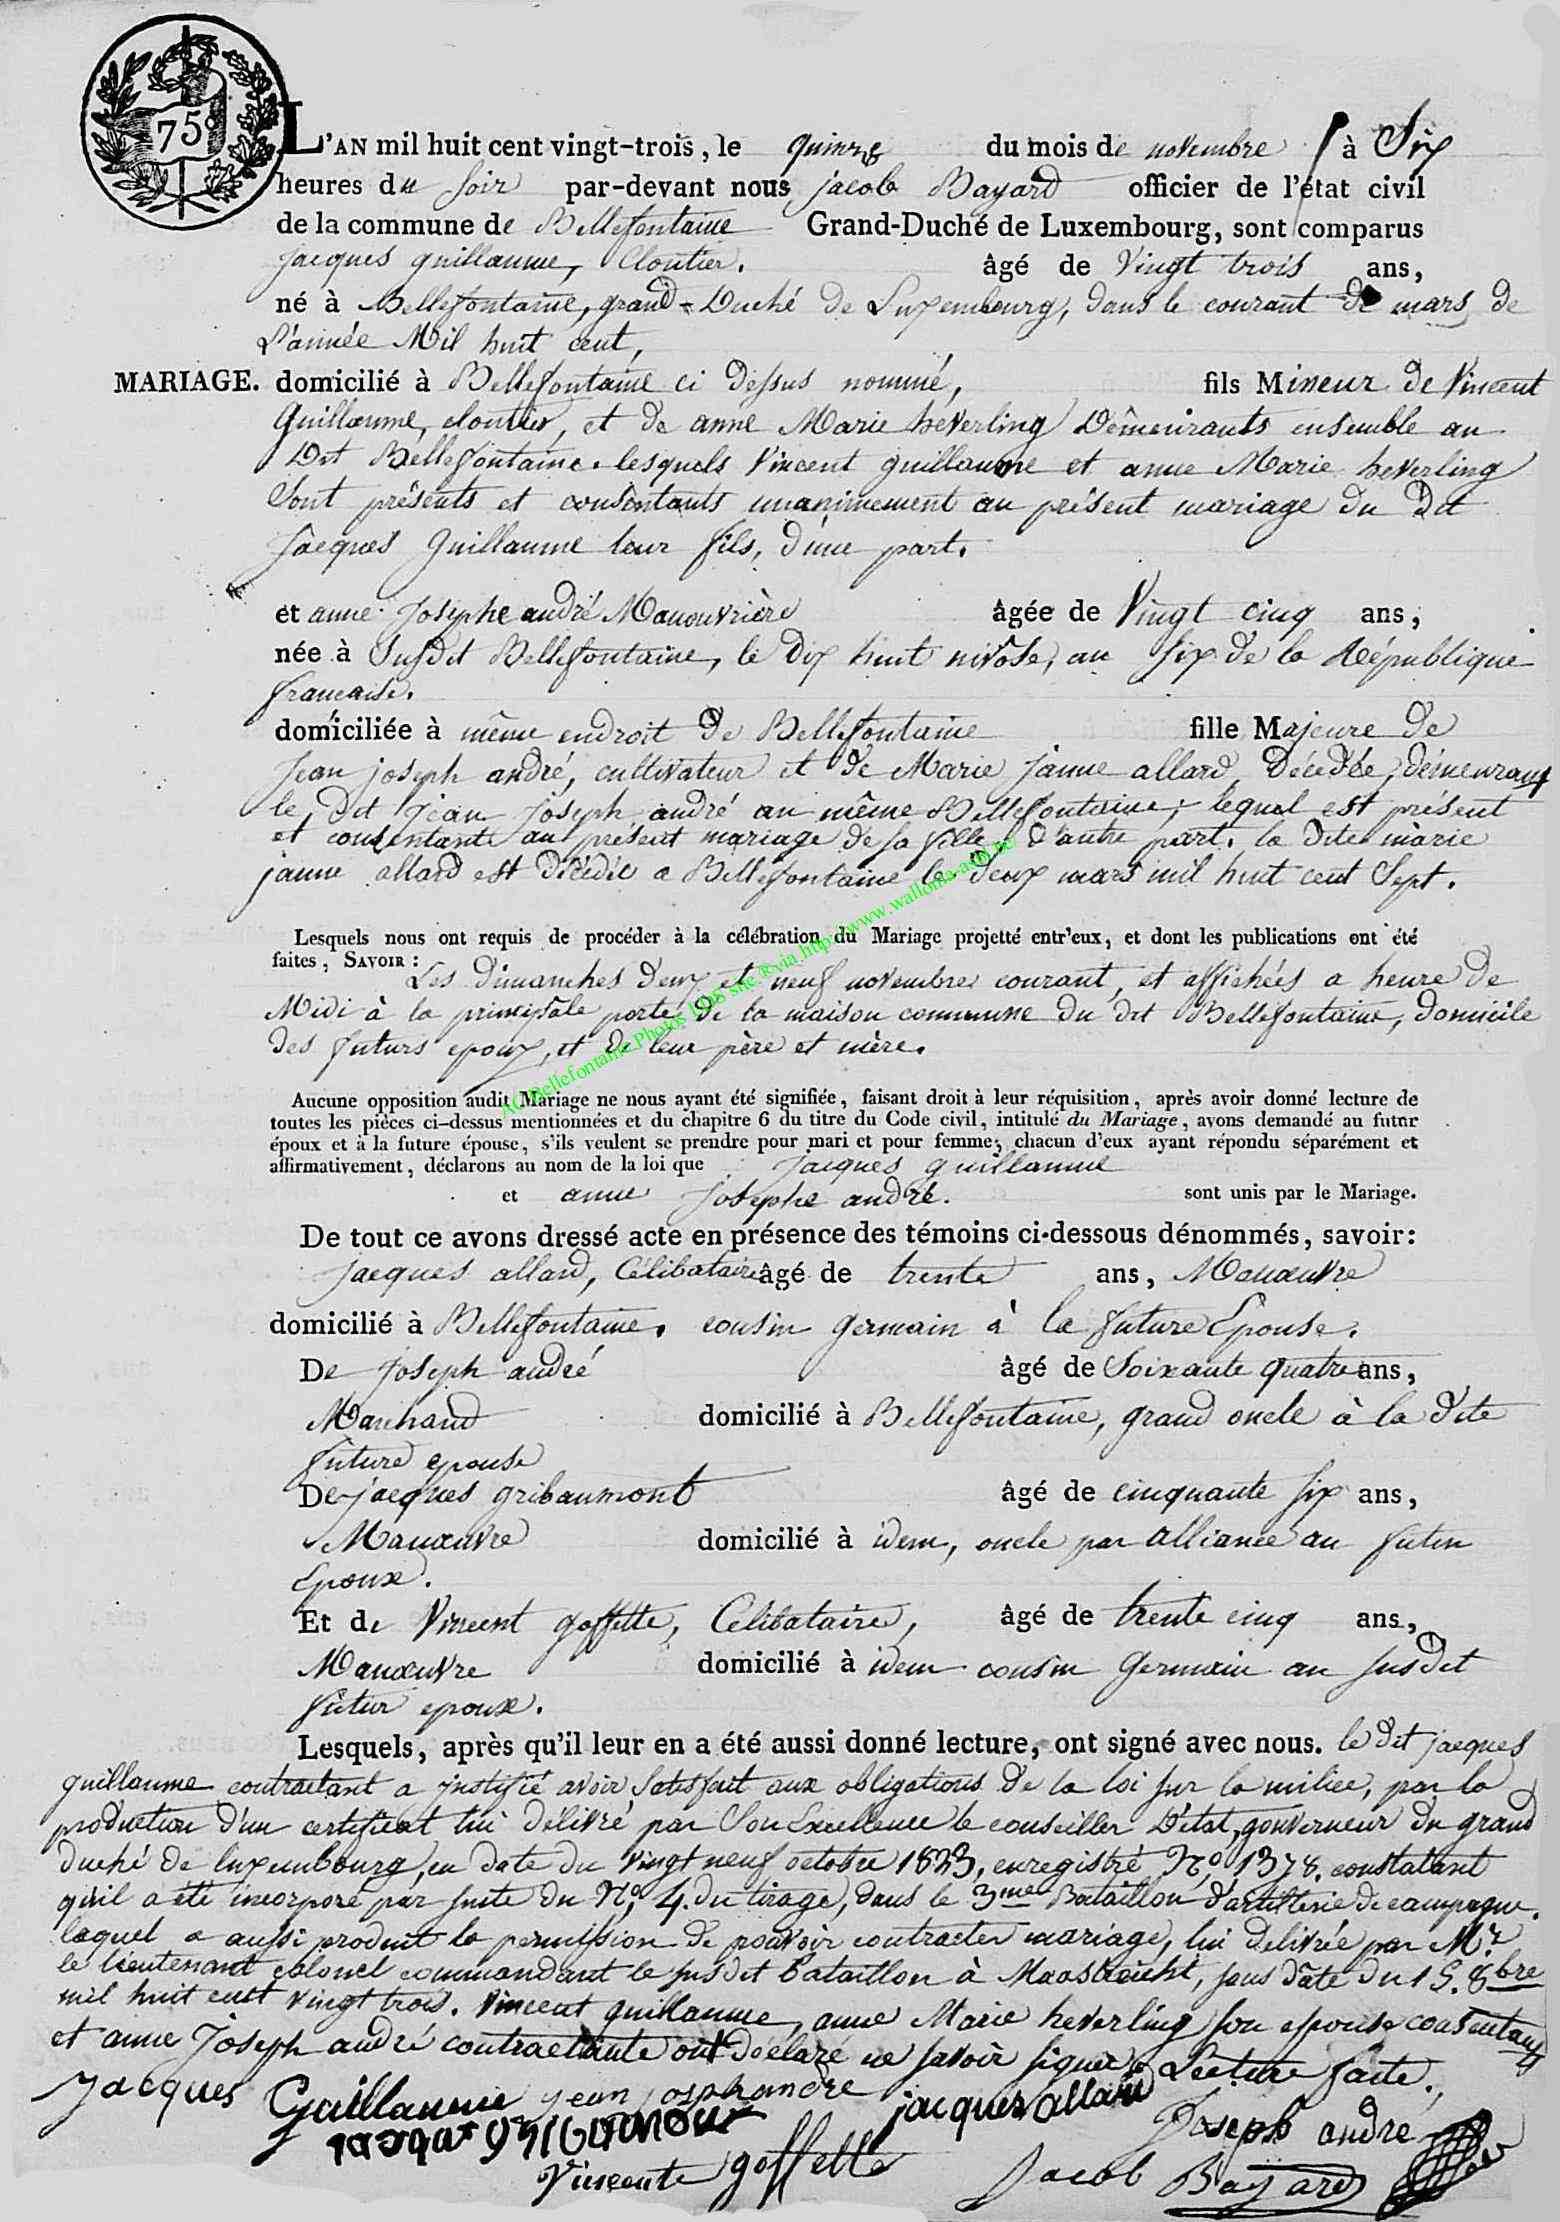 75c
L'AN mil huit cent vingt-trois, le quinze du mois de novembre à Six
heures du soir par-devant nous jacob Bayard officier de l'état civil
de la commune de Bellefontaine Grand-Duché de Luxembourg, sont comparus
jacques guillaume, Cloutier. âgé de Vingt trois ans,
né à Bellefontaine, grand-Duché de Luxembourg, dans le courant de mars de
L'année Mil huit cent,
MARIAGE. domicilié à Bellefontaine ci dessus nommé, fils Mineur de Vincent
Guillaume, cloutier, et de anne Marie heverling Demeurants ensemble au
Dit Bellefontaine. lesquels Vincent guillaume et anne Marie heverling
Sont présents et consentants unanimement au présent mariage du Dit
Jacques Guillaume leur fils, d'une part.
et anne Josephe andré Manouvrière âgée de Vingt cinq ans,
née à Susdit Bellefontaine, le dix huit nivôse, an six de la République
francaise.
domiciliée à même endroit de Bellefontaine fille Majeure de
Jean joseph andré, cultivateur et de Marie janne allard décédée, demeurant
le dit Jean joseph andré au même Bellefontaine, lequel est présent
et consentant au présent mariage de sa fille, d'autre part. la dite marie
janne allard est décédée a Bellefontaine le deux mars mil huit cent Sept.
Lesquels nous ont requis de procéder à la célébration du Mariage projetté entr'eux, et dont les publications ont été
faites, SAVOIR :
Les Dimanches deux et neuf novembre courant, et affichées a heure de
Midi à la principale porte de la maison commune du dit Bellefontaine, domicile
des futurs epoux, et de leur père et mère.
AC Bellefontaine Photos 1108 sne ® via http://www.wallonia-asbl.be/
Aucune opposition audit Mariage ne nous ayant été signifiée, faisant droit à leur réquisition, après avoir donné lecture de
toutes les pièces ci-dessus mentionnées et du chapitre 6 du titre du Code civil, intitulé du Mariage, avons demandé au futur
époux et à la future épouse, s'ils veulent se prendre pour mari et pour femme; chacun d'eux ayant répondu séparément et
affirmativement, déclarons au nom de la loi que jacques guillaume
et anne josephe andré. sont unis par le Mariage.
De tout ce avons dressé acte en présence des témoins ci-dessous dénommés, savoir:
jacques allard, Célibataire âgé de trente ans, Manœuvre
domicilié à Bellefontaine, cousin germain à la future Epouse.
De joseph andré âgé de Soixante quatre ans,
Marchand domicilié à Bellefontaine, grand oncle à la dite
future epouse
De jacques gribaumont âgé de cinquante six ans,
Manœuvre domicilié à idem, oncle par alliance au futur
Epoux.
Et de Vincent goffette, Celibataire, âgé de trente cinq ans,
Manœuvre domicilié à idem cousin germain au susdit
futur epoux.
Lesquels, après qu'il leur en a été aussi donné lecture, ont signé avec nous. le dit jacques
guillaume contractant a justifié avoir satisfait aux obligations de la loi sur la milice, par la
production d'un certificat lui délivré par Son Excellence le conseiller D'état, gouverneur du grand
duché de luxembourg, en date du vingt neuf octobre 1823, enregistré No 1378. constatant
qu'il a été incorporé par suite du No 4. du tirage, dans le 3me Bataillon d'artillerie de campagne.
laquel a aussi produit la permission de pouvoir contracter mariage, lui delivrée par Mr
le lieutenant colonel commandant le susdit bataillon à Maastricht, sous date du 15. 8bre
mil huit cent vingt trois. Vincent guillaume, anne Marie heverling son epouse consentans
et anne Joseph andré contractante ont déclaré ne savoir signer. Lecture faite.
Jacques Guillaume jean josph andre jacques allard
Joseph andre
Vincent goffette Jacob Bayard